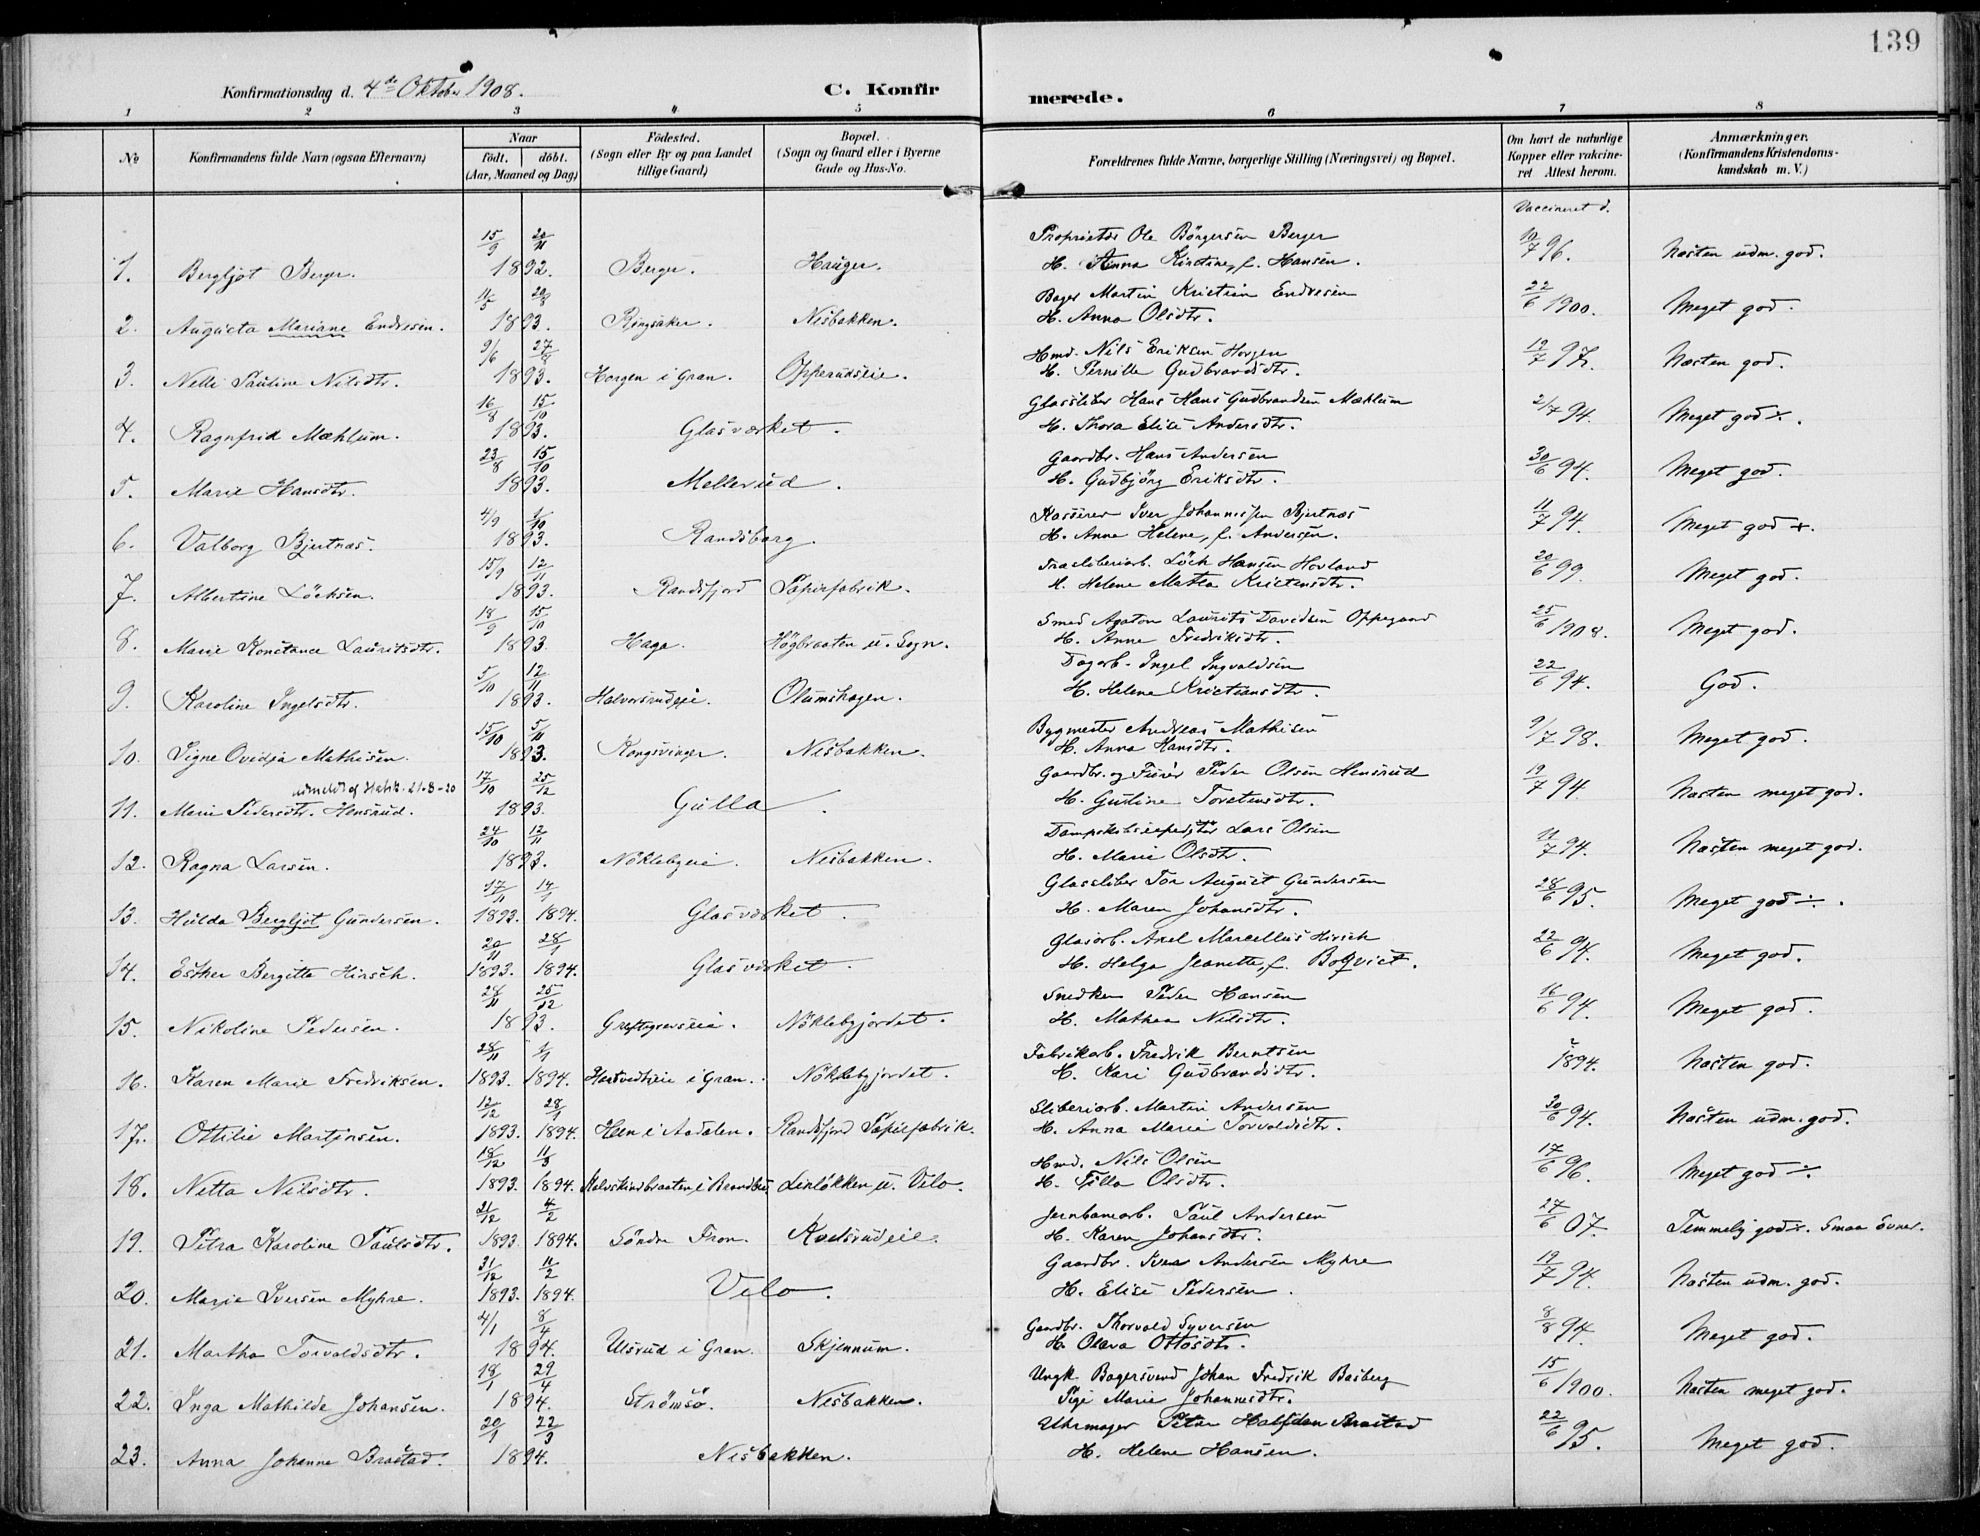 139
Konfirmationsdag d. 4de Oktober 1908.
C. Konfirmerede.
1 2 3 4 5 6 7 8
№
Konfirmandens fulde Navn (ogsaa Efternavn)
Naar
födt. döbt.
(Aar, Maaned og Dag)
Födested.
(Sogn eller By og paa Landet
tillige Gaard)
Bopæl.
(Sogn og Gaard eller i Byerne
Gade og Hus-No.
Forældrenes fulde Navne, borgerlige Stilling (Næringsvei) og Bopæl.
Om havt de naturlige
Kopper eller vakcine-
ret Attest herom.
Anmærkninger.
(Konfirmandens Kristendoms-
kundskab m. V.)
Vaccineret d.
15/9 20/11 Proprietær Ole Börgersen Berger
1. Bergljot Berger. 1892. Berger. Hauger. H. Anna Kirstine, f. Hansen. 10/7 96. Næsten udm. god.
11/5 20/8 Bager Martin Kristian Endresen
2. Augusta Mariane Endresen. 1893. Ringsaker. Nesbakken. H. Anna Olsdtr. 22/6 1900. Meget god.
9/6 27/8 Hmd. Nils Eriksen Horgen
3. Nelli Pauline Nilsdtr. 1893. Horgen i Gran. Opperudseie. H. Pernille Gudbrandsdtr. 19/7 97. Næsten god.
16/8 15/10 Glassliber Hans Hans Gudbrandsen Mæhlum
4. Ragnfrid Mæhlum. 1893. Glasværket. H. Thora Elise Andersdtr. 2/7 94. Meget god÷.
23/8 15/10 Gaardbr. Hans Andersen
5. Marie Hansdtr. 1893. Mellerud. H. Gudbjörg Eriksdtr. 30/6 94. Meget god.
4/9 1/10 Kasserer Iver Johannessen Bjertnæs
6. Valborg Bjertnæs. 1893. Randsborg. H. Anne Helene, f. Andersen. 11/7 94. Meget god+.
15/9 12/11 Træsliberiarb. Löck Hansen Hovland
7. Albertine Löcksen. 1893. Randsfjord Papirfabrik. H. Helene Matea Kristensdtr. 20/6 99. Meget god.
18/9 15/10 Smed Agaton Laurits Davidsen Oppegaard
8. Marie Konstance Lauritsdtr. 1893. Haga. Högbraaten u. Sogn. H. Anne Fredriksdtr. 25/6 1908. Meget god.
5/10 12/11 Dagarb. Ingel Ingvaldsen
9. Karoline Ingelsdtr. 1893. Halvorsrudeie. Olumshagen. H. Helene Kristiansdtr. 22/6 94. God.
15/10 5/11 Bygmester Andreas Mathisen
10. Signe Ovidja Mathisen. 1893. Kongsvinger. Nesbakken. H. Anna Hansdtr. 9/7 98. Meget god.
udmeldt af Statsk. 21-8-20 17/10 25/12 Gaardbr. og Furer Peder Olsen Hensrud
11. Marie Pedersdtr. Hensrud. 1893. Gulla. H. Gustine Torstensdtr. 19/7 94. Næsten meget god.
24/10 12/11 Dampskibsexpeditör Lars Olsen
12. Ragna Larsen. 1893. Nöklebyeie. Nesbakken. H. Marie Olsdtr. 11/7 94. Næsten meget god.
17/11 14/1 Glassliber Tor August Gundersen
13. Hulda Bergljot Gundersen. 1893. 1894. Glasværket. H. Maren Johansdtr. 28/6 95. Meget god÷.
20/11 28/1 Glasarb. Axel Marcellius Hirsch
14. Esther Bergitte Hirsch. 1893. 1894. Glasværket. H. Helga Jeanette, f. Boqvist. 22/6 94. Meget god.
28/11 25/12 Snedker Peder Hansen
15. Nikoline Pedersen. 1893. Greftegrevseie. Nöklebyjordet. H. Mathea Nilsdtr. 16/6 94. Meget god.
28/11 1/1 Fabrikarb. Fredrik Berntsen
16. Karen Marie Fredriksen. 1893. 1894. Hastvedteie i Gran. Nöklebyjordet. H. Kari Gudbrandsdtr. 1894. Næsten god.
12/12 28/1 Sliberiarb. Martin Andersen
17. Ottilie Martinsen. 1893. 1894. Hen i Aadalen. Randsfjord Papirfabrik. H. Anna Marie Torvaldsdtr. 30/6 94. Næsten udm. god.
18/12 11/3 Hmd. Nils Olsen
18. Netta Nilsdtr. 1893. 1894. Kalvskindbraaten i Brandbu Linlökken u. Velo. H. Pilla Olsdtr. 17/6 96. Meget god÷.
21/12 4/2 Jernbanearb. Paul Andersen
19. Petra Karoline Paulsdtr. 1893 1894. Söndre Fron. Kvelsrudeie. H. Karen Johansdtr. 27/6 07. Temmelig god. Smaa Evner.
31/12 11/2 Gaardbr. Iver Andersen Myhre
20. Marie Iversen Myhre. 1893. 1894. Velo. H. Elise Pedersen. 19/7 94. Næsten udm. god.
4/1 8/4 Gaardbr. Thorvald Syversen
21. Martha Torvaldsdtr. 1894. Ulsrud i Gran. Skjennum. H. Olava Ottosdtr. 8/8 94. Meget god.
18/1 29/4 Ungk. Bagersvend Johan Fredrik Basberg
22. Inga Mathilde Johansen. 1894. Strömsö. Nesbakken. Pige Marie Johannesdtr. 15/6 1900. Næsten meget god.
20/1 22/3 Uhrmager Peter Halfdan Brastad
23. Anna Johanne Brastad. 1894. Nesbakken. H. Helene Hansen. 22/6 95. Meget god.